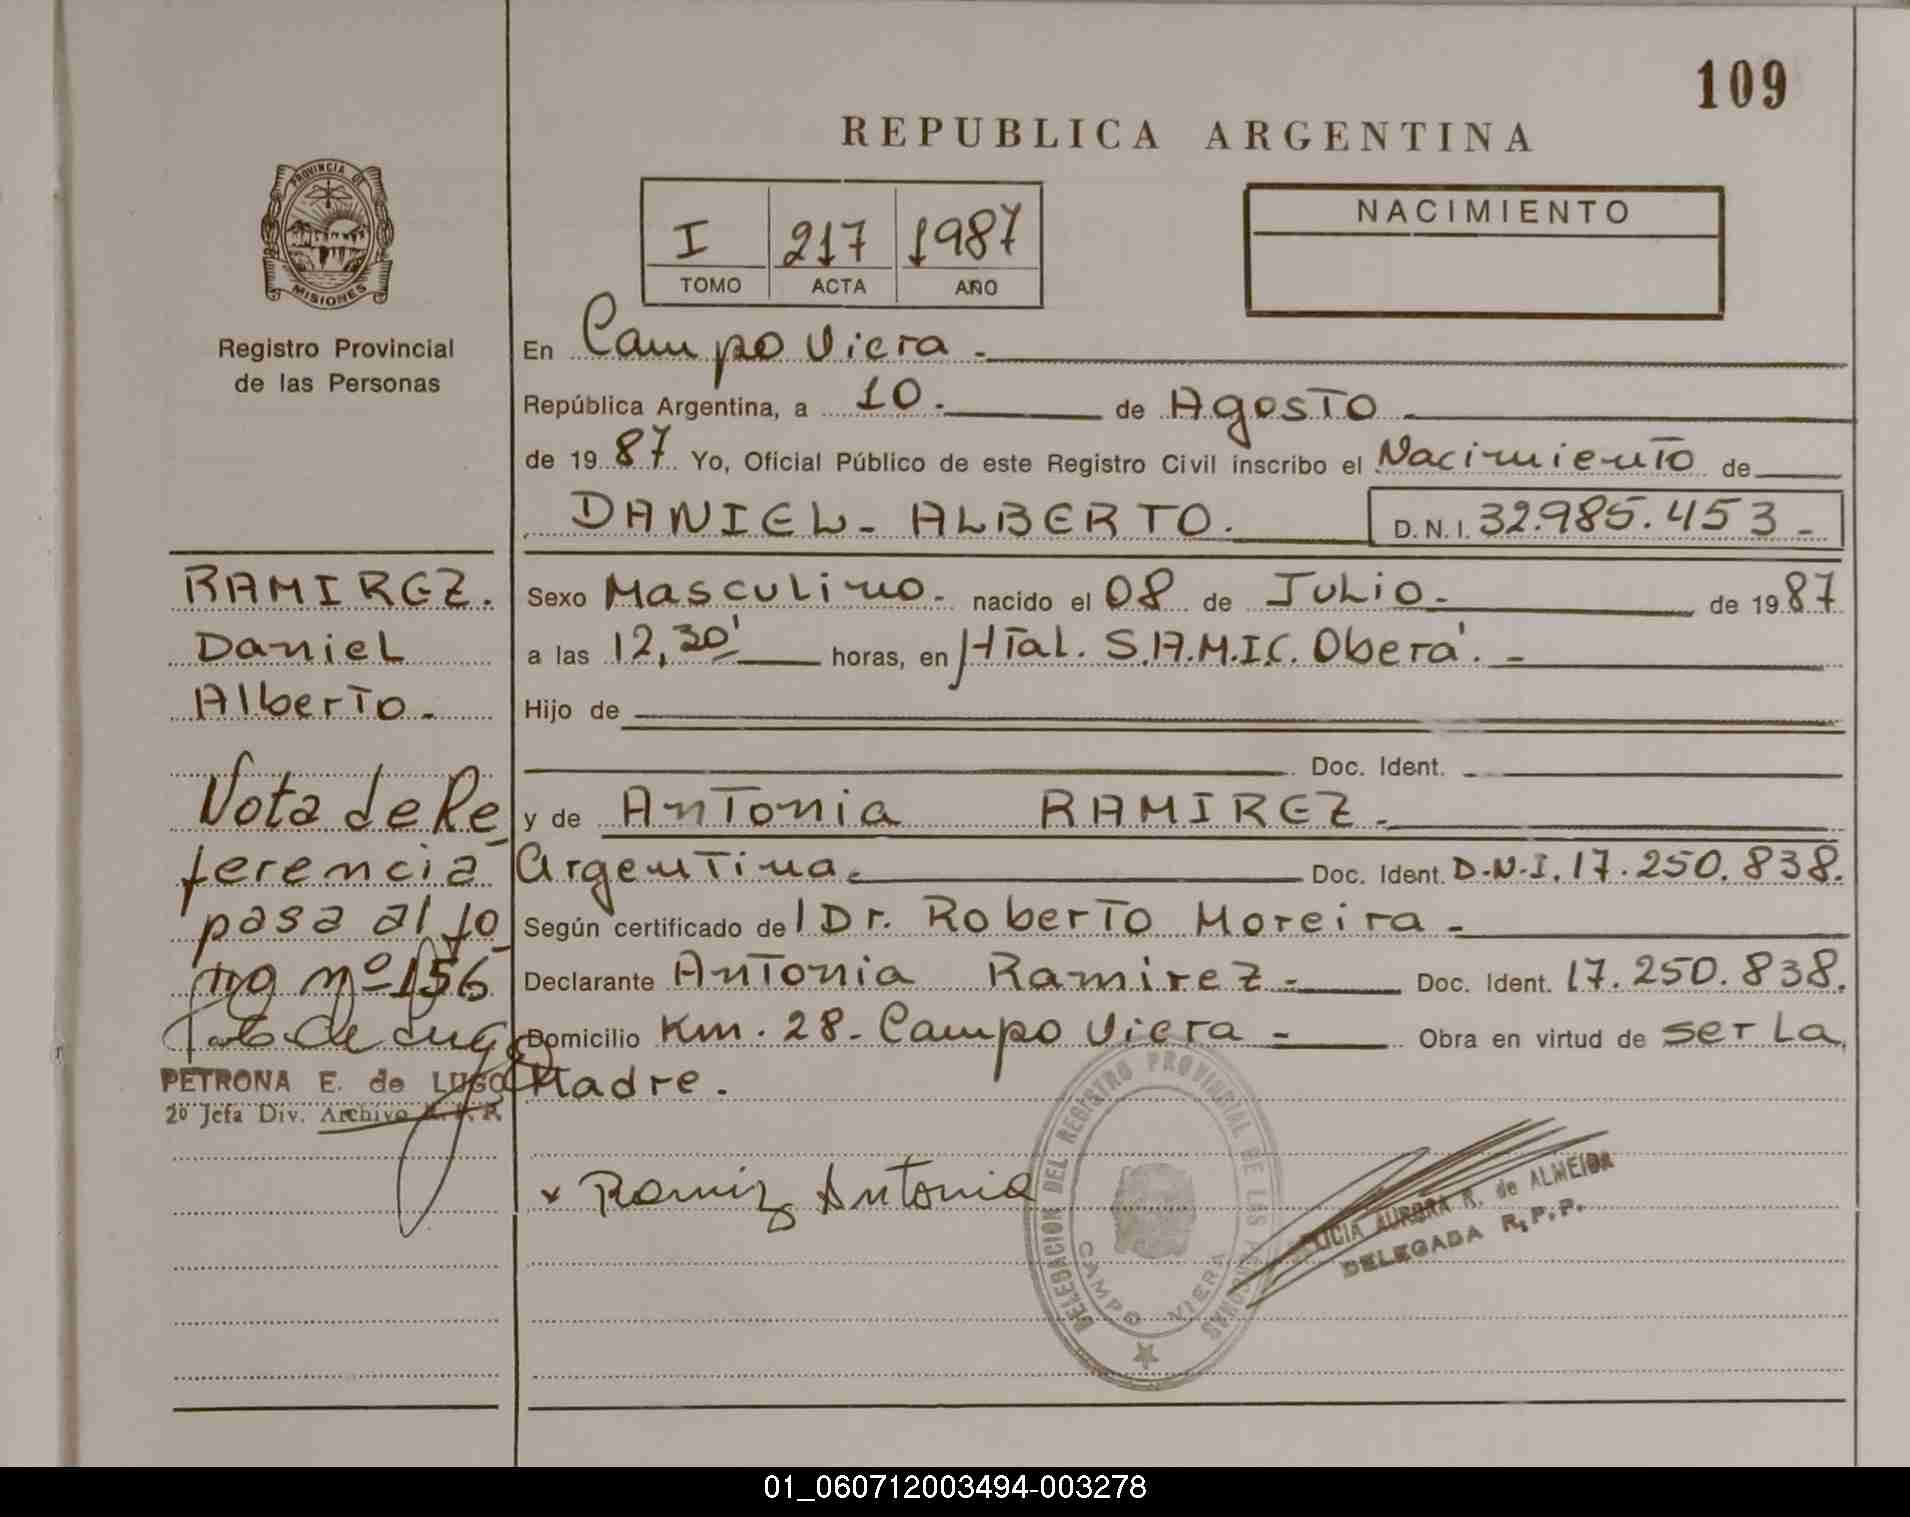 109
REPUBLICA ARGENTINA
PROVINCIA DE
MISIONES
Registro Provincial
de las Personas
I 217 1987
TOMO ACTA AÑO
NACIMIENTO
En Campo Viera.-
República Argentina, a 10.- de Agosto.-
de 1987 Yo, Oficial Público de este Registro Civil inscribo el Nacimiento de
DANIEL-ALBERTO. D.N.I. 32.985.453-
RAMIREZ.
Daniel
Alberto.-
Sexo Masculino.- nacido el 08 de Julio.- de 1987
a las 12,30' horas, en Htal. S.A.M.I.C. Oberá.-
Hijo de
Doc. Ident. -
y de Antonia RAMIREZ.-
Argentina.- Doc. Ident. D.N.I. 17.250.838.
Según certificado del Dr. Roberto Moreira.-
Declarante Antonia Ramirez.- Doc. Ident. 17.250.838.
Domicilio Km. 28- Campo Viera.- Obra en virtud de ser la
Madre.
Nota de Re
ferencia
pasa al fo
no nº 156
PETRONA E. de LUGO
2º Jefa Div. Archivo R. P. P.
x Ramiz Antonia
DELEGACION DEL REGISTRO PROVINCIAL DE LAS PERSONAS
CAMPO VIERA
AURORA R. de ALMEIDA
DELEGADA R.P.P.
01_060712003494-003278